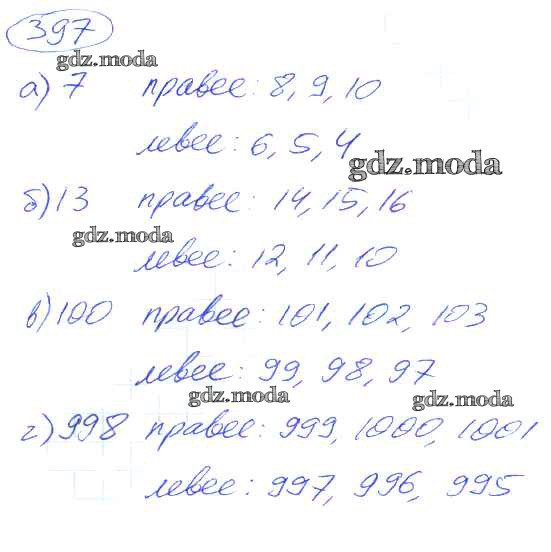 397
gdz.moda
а) 7 правее: 8, 9, 10
левее: 6, 5, 4
gdz.moda
б) 13 правее: 14, 15, 16
gdz.moda
левее: 12, 11, 10
в) 100 правее: 101, 102, 103
левее: 99, 98, 97
gdz.moda
gdz.moda
г) 998 правее: 999, 1000, 1001
левее: 997, 996, 995